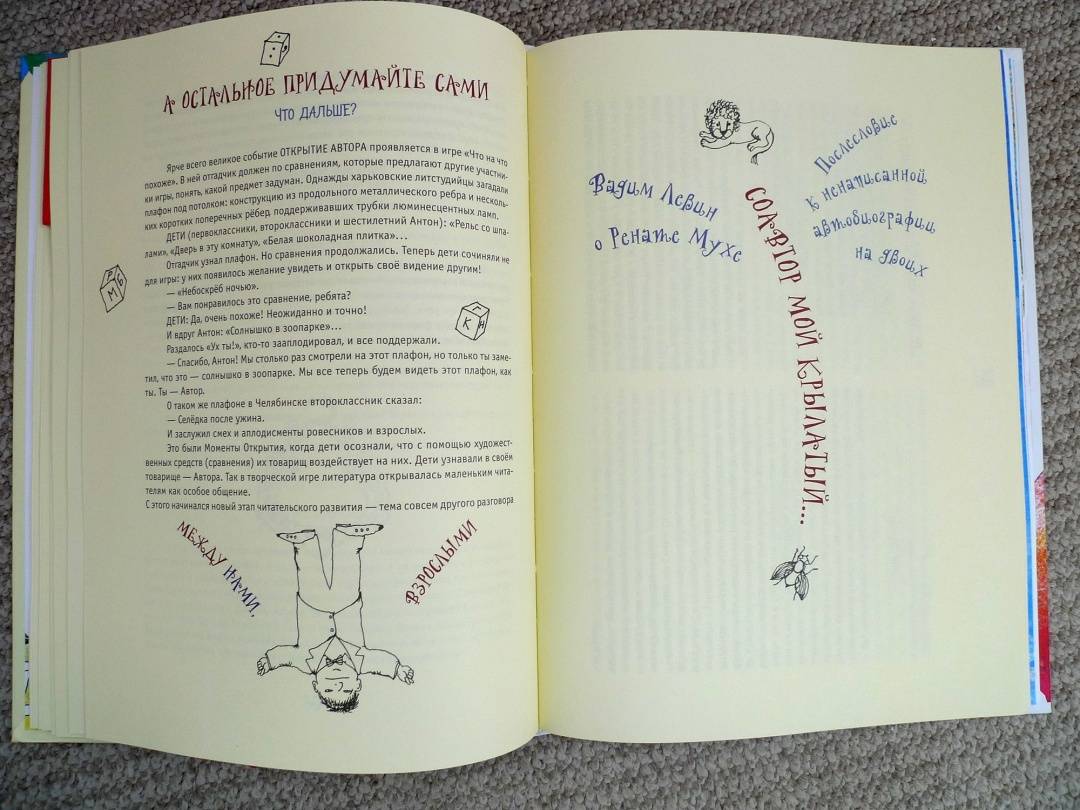 А ОСТАЛЬНОЕ ПРИДУМАЙТЕ САМИ
ЧТО ДАЛЬШЕ?
Ярче всего великое событие ОТКРЫТИЕ АВТОРА проявляется в игре «Что на что
похоже». В ней отгадчик должен по сравнениям, которые предлагают другие участни-
ки игры, понять, какой предмет задуман. Однажды харьковские литстудийцы загадали
плафон под потолком: конструкцию из продольного металлического ребра и несколь-
ких коротких поперечных рёбер поддерживавших трубки люминесцентных ламп.
ДЕТИ (первоклассники, второклассники и шестилетний Антон): «Рельс со шпа-
лами», «Дверь в эту комнату», «Белая шоколадная плитка»...
Отгадчик узнал плафон. Но сравнения продолжались. Теперь дети сочиняли не
для игры: у них появилось желание увидеть и открыть своё видение другим!
— «Небоскрёб ночью».
— Вам понравилось это сравнение, ребята?
ДЕТИ: Да, очень похоже! Неожиданно и точно!
И вдруг Антон: «Солнышко в зоопарке»...
Раздалось «Ух ты!», кто-то зааплодировал, и все поддержали.
— Спасибо, Антон! Мы столько раз смотрели на этот плафон, но только ты заме-
тил, что это — солнышко в зоопарке. Мы все теперь будем видеть этот плафон, как
ты. Ты — Автор.
О таком же плафоне в Челябинске второклассник сказал:
— Селёдка после ужина.
И заслужил смех и аплодисменты ровесников и взрослых.
Это были Моменты Открытия, когда дети осознали, что с помощью художест-
венных средств (сравнения) их товарищ воздействует на них. Дети узнавали в своём
товарище — Автора. Так в творческой игре литература открывалась маленьким чита-
телям как особое общение.
С этого начинался новый этап читательского развития — тема совсем другого разговора
МЕЖДУ НАМИ,
ВЗРОСЛЫМИ
Р
М Б
Г
К Н
Вадим Левин
о Ренате Мухе
СОАВТОР МОЙ КРЫЛАТЫЙ...
Послесловие
к ненаписанной
автобиографии
на двоих